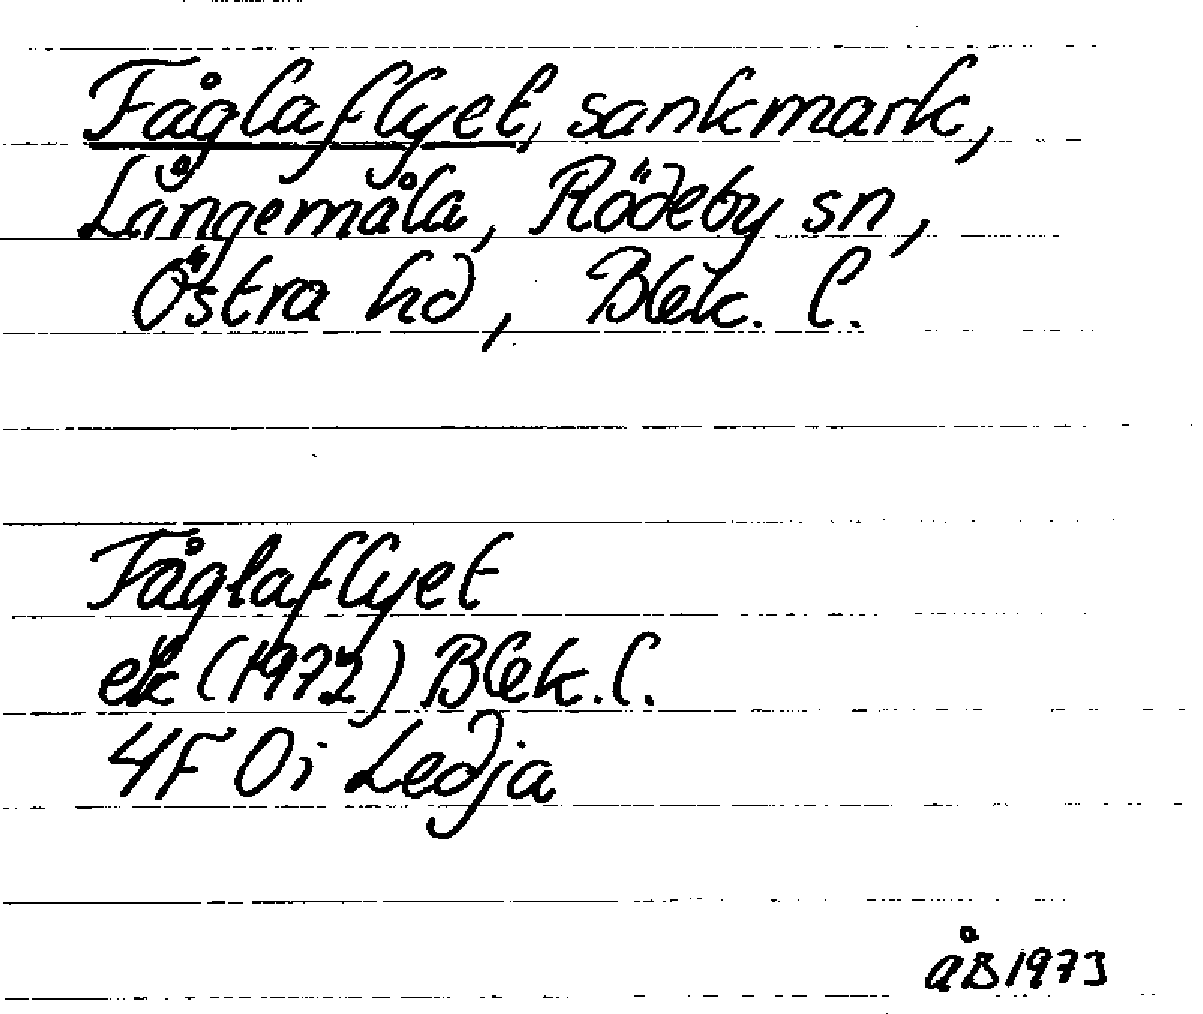 Fåglaflyet, sankmark,
Långemåla, Rödeby sn,
Östra hd, Blek. l.
Fåglaflyet
ek (1972) Blek. l.
4F 0i Ledja
åB 1973